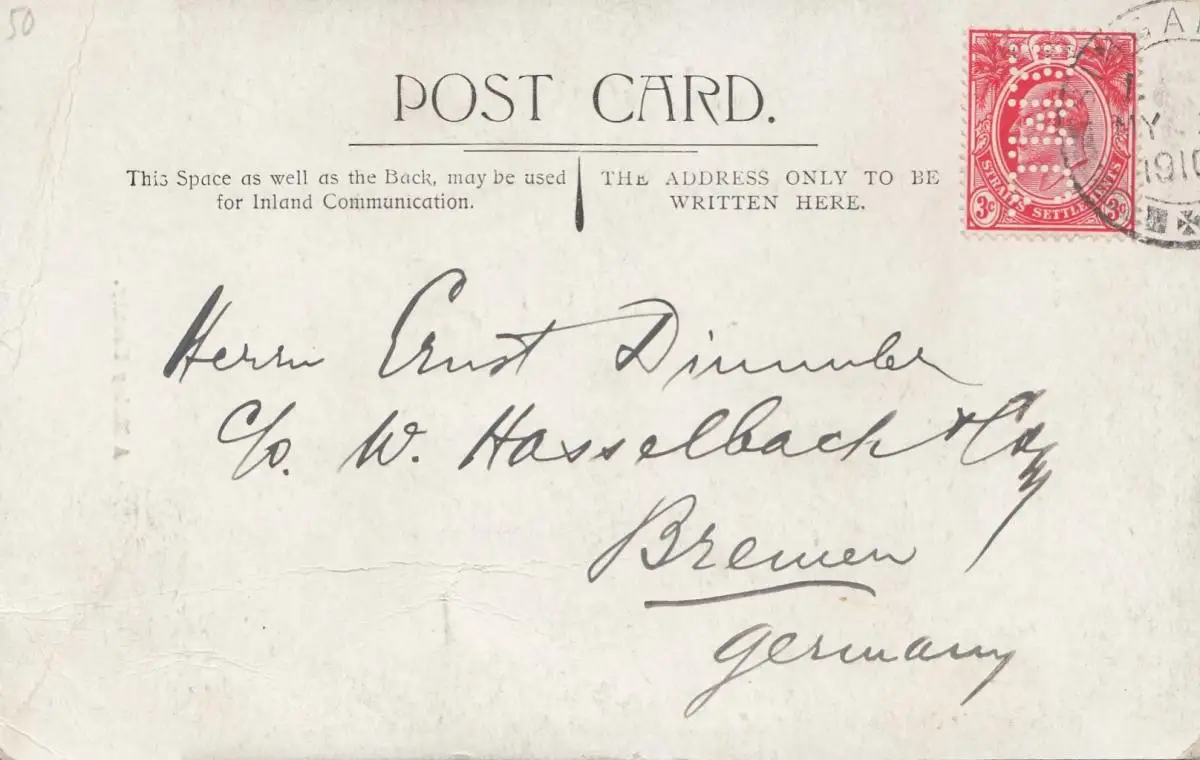 50
POST CARD.
This Space as well as the Back, may be used
for Inland Communication.
THE ADDRESS ONLY TO BE
WRITTEN HERE.
STRAITS SETTLEMENTS
3c 3c
MY
1910
Herrn Ernst
c/o. W. Hasselbach & Co
Bremen
Germany